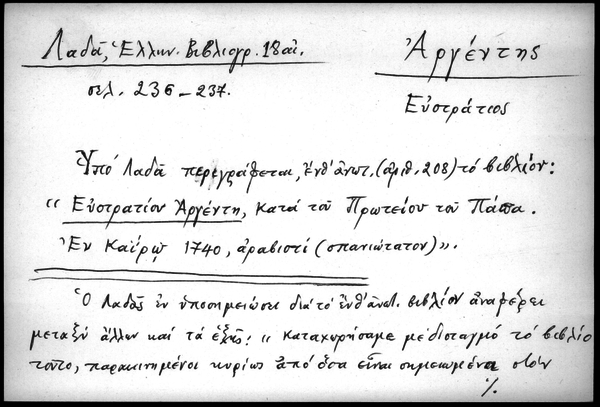 Λαδᾶ, Ἑλλην. Βιβλιογρ. 18 αἰ.
Ἀργέντης
σελ. 236-237.
Εὐστράτιος
Ὑπό Λαδᾶ περιγράφεται, ἔνθ' ἀνωτ. (ἀριθ. 208) τό βιβλίον:
"Εὐστρατίου Ἀργέντη, κατά τοῦ Πρωτείου τοῦ Πάπα.
Ἐν Καΐρῳ 1740, ἀραβιστί (σπανιώτατον)".
Ὁ Λαδᾶς ἐν ὑποσημειώσει διά τό ἔνθ' ἀνωτ. βιβλίον ἀναφέρει
μεταξύ ἄλλων καί τά ἑξῆς: "καταχωρήσαμε μέ δισταγμό τό βιβλίο
τοῦτο, παρακινημένοι κυρίως ἀπό ὅσα εἶναι σημειωμένα στόν
./.